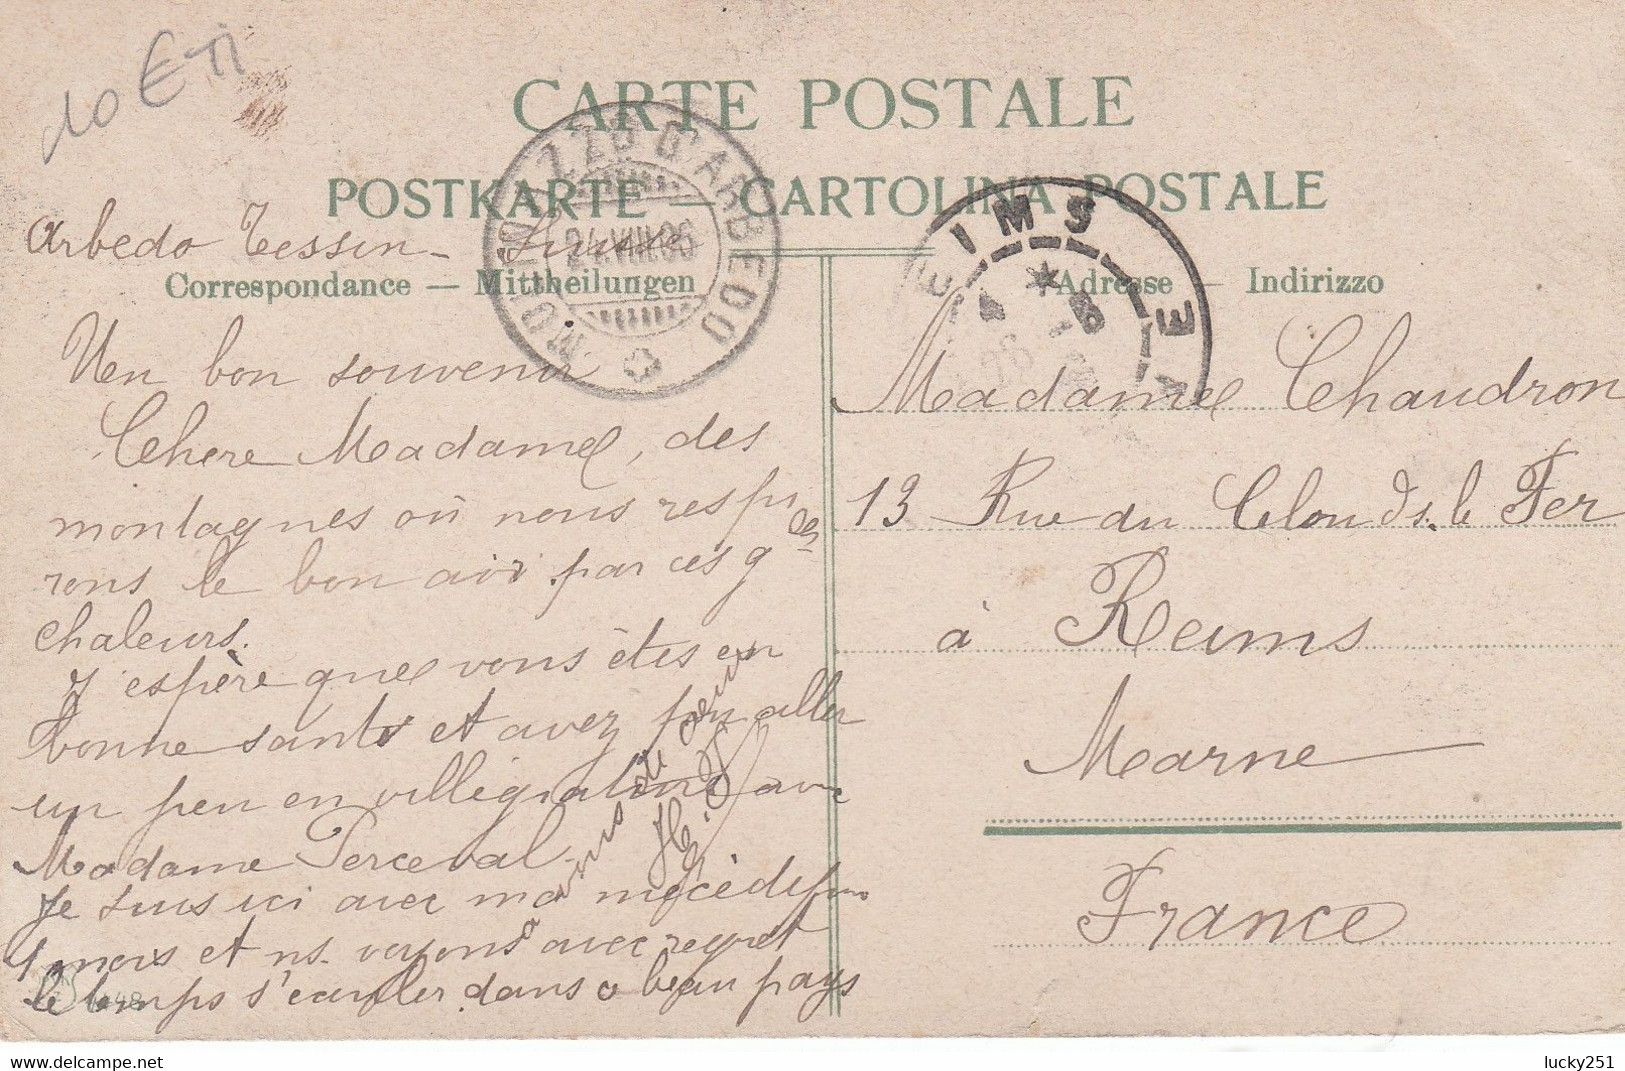 do ETI
CARTE POSTALE
POSTKARTE — CARTOLINA POSTALE
MOLINAZZO D'ARBEDO
24.VIII.06
REIMS
MARNE
Arbedo Tessin - Suisse
Correspondance — Mittheilungen
Adresse — Indirizzo
Un bon souvenir
Chere Madame, des
montagnes où nous respi
rons le bon air par ces gdes
chaleurs.
J'espère que vous êtes en
bonne santé et avez pu aller
un peu en villégiature avec
Madame Perceval
Je suis ici avec ma nièce depuis
1 mois et ns. voyons avec regret
le temps s'écouler dans ce beau pays
Madame Chaudron
13 Rue du Clou ds. le Fer
à Reims
Marne
France
1448
do ETI
lucky251